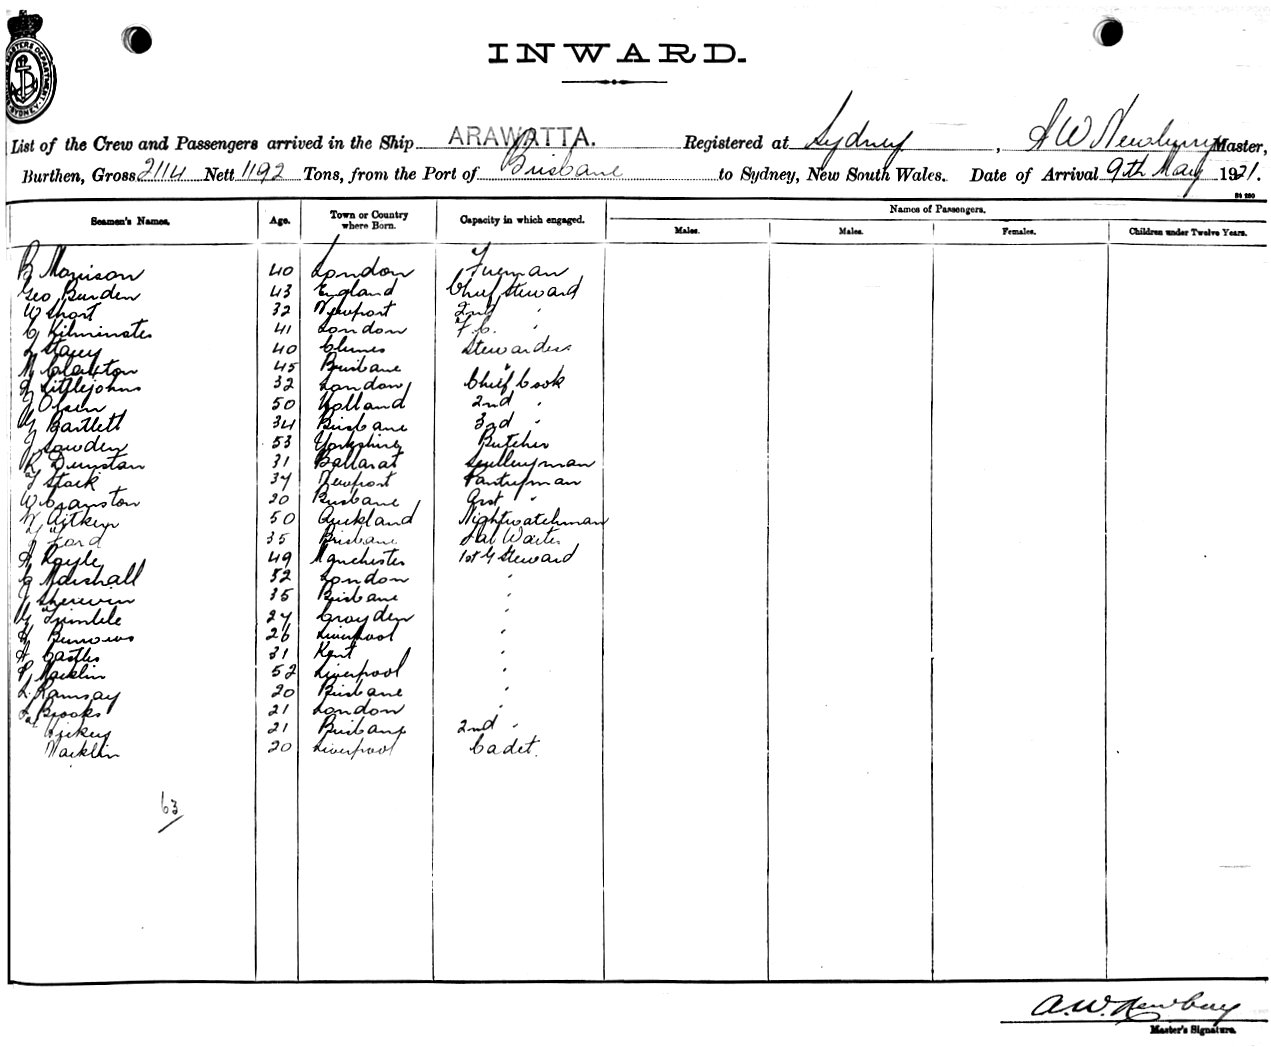 INWARD.
List of the Crew and Passengers arrived in the Ship ARAWATTA. Registered at Sydney, A W Newbury Master,
Burthen, Gross 2114 Nett 1192 Tons, from the Port of Brisbane to Sydney, New South Wales. Date of Arrival 9th May 1921.
Seamen's Names. Age. Town or Country where Born. Capacity in which engaged. Names of Passengers.
Males. Males. Females. Children under Twelve Years.
Morrison 40 London Fireman
Geo Burden 43 England Chief Steward
W Short 32 Newport 2nd "
C Kilminster 41 London F.C. "
Stacy 40 Clunes Stewardess
Clayton 45 Brisbane "
Littlejohns 32 London Chief Cook
J Olsen 50 Holland 2nd "
G Bartlett 34 Brisbane 3rd "
J Sowden 53 Yorkshire Butcher
R Dunstan 31 Ballarat Sculleryman
F Stock 37 Newport Pantryman
W Cranston 20 Brisbane Asst "
Aitken 50 Auckland Nightwatchman
J Ford 35 Brisbane Sal Waiter
A Royle 49 Manchester 1st G Steward
G Marshall 52 London "
J Sherwin 35 Brisbane "
G Trimble 27 Croyden "
H Burrows 26 Liverpool "
A Castles 31 Kent "
P Macklin 52 Liverpool "
L. Ramsay 20 Brisbane "
Brooks 21 London "
Hickey 21 Brisbane 2nd "
Macklin 20 Liverpool Cadet.
63
A.W. Newbury
Master's Signature.